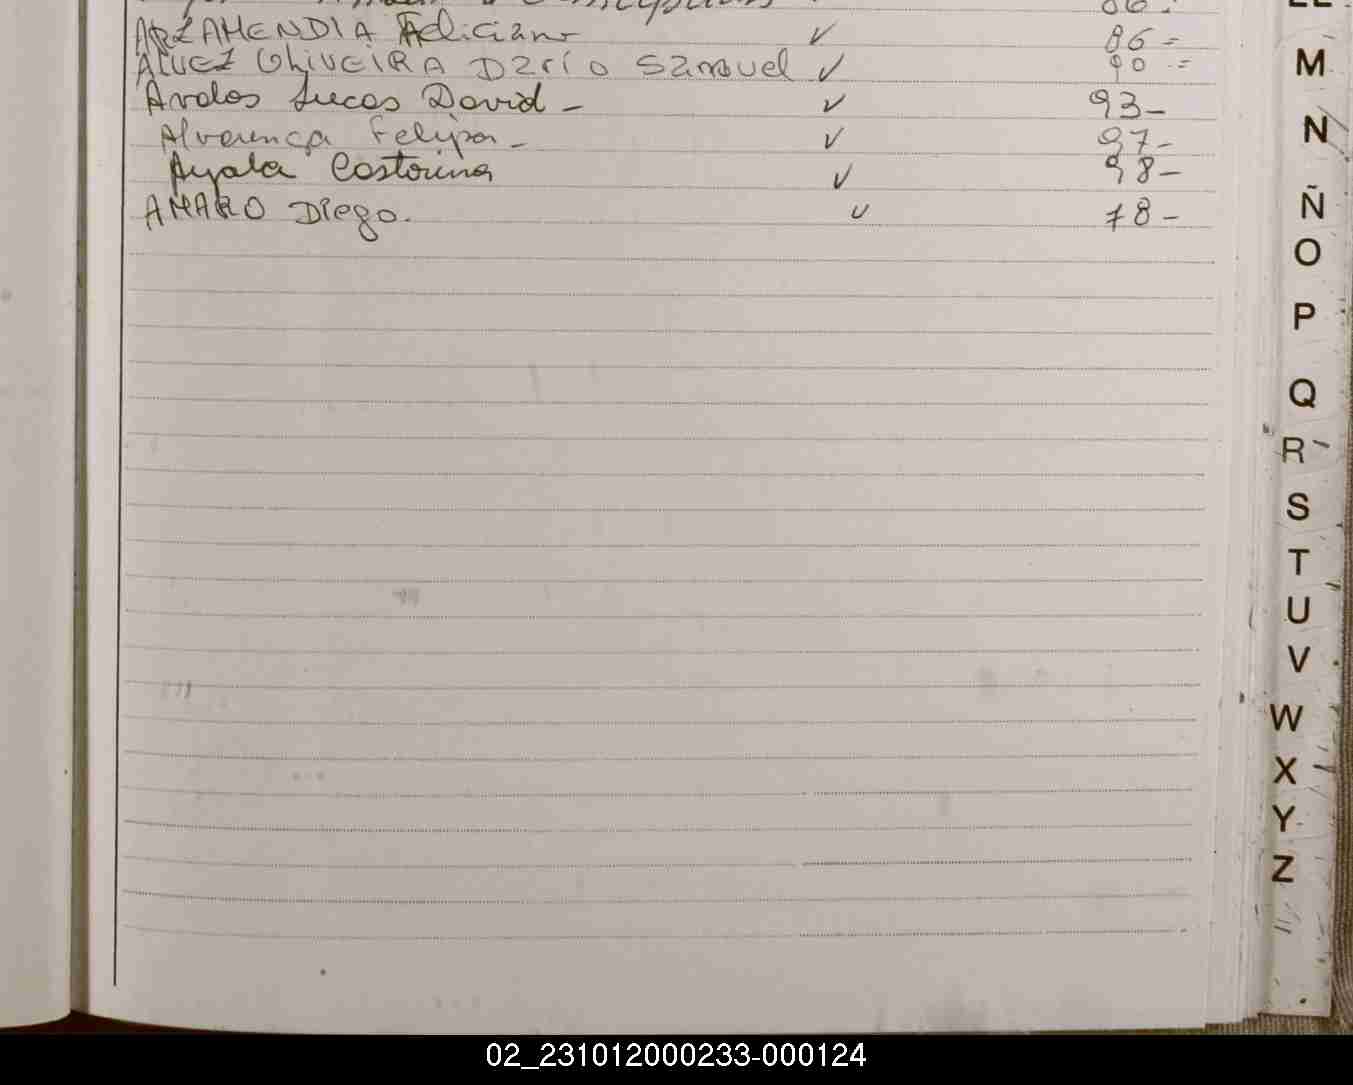 86.
ARZAMENDIA Feliciano ✓ 86 =
ALVEZ OLIVEIRA Darío Samuel ✓ 90 =
Avalos Lucas David - ✓ 93-
Alvarenga Felipa - ✓ 97-
Ayala Castorina ✓ 98-
AMARO Diego. ✓ 78-
LL
M
N
Ñ
O
P
Q
R
S
T
U
V
W
X
Y
Z
02_231012000233-000124